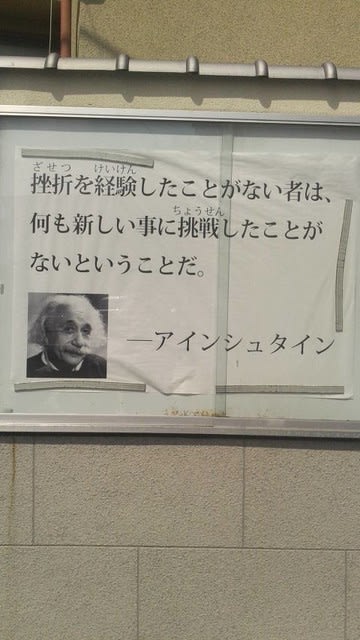 ざせつ けいけん
挫折を経験したことがない者は、
ちょうせん
何も新しい事に挑戦したことが
ないということだ。
—アインシュタイン